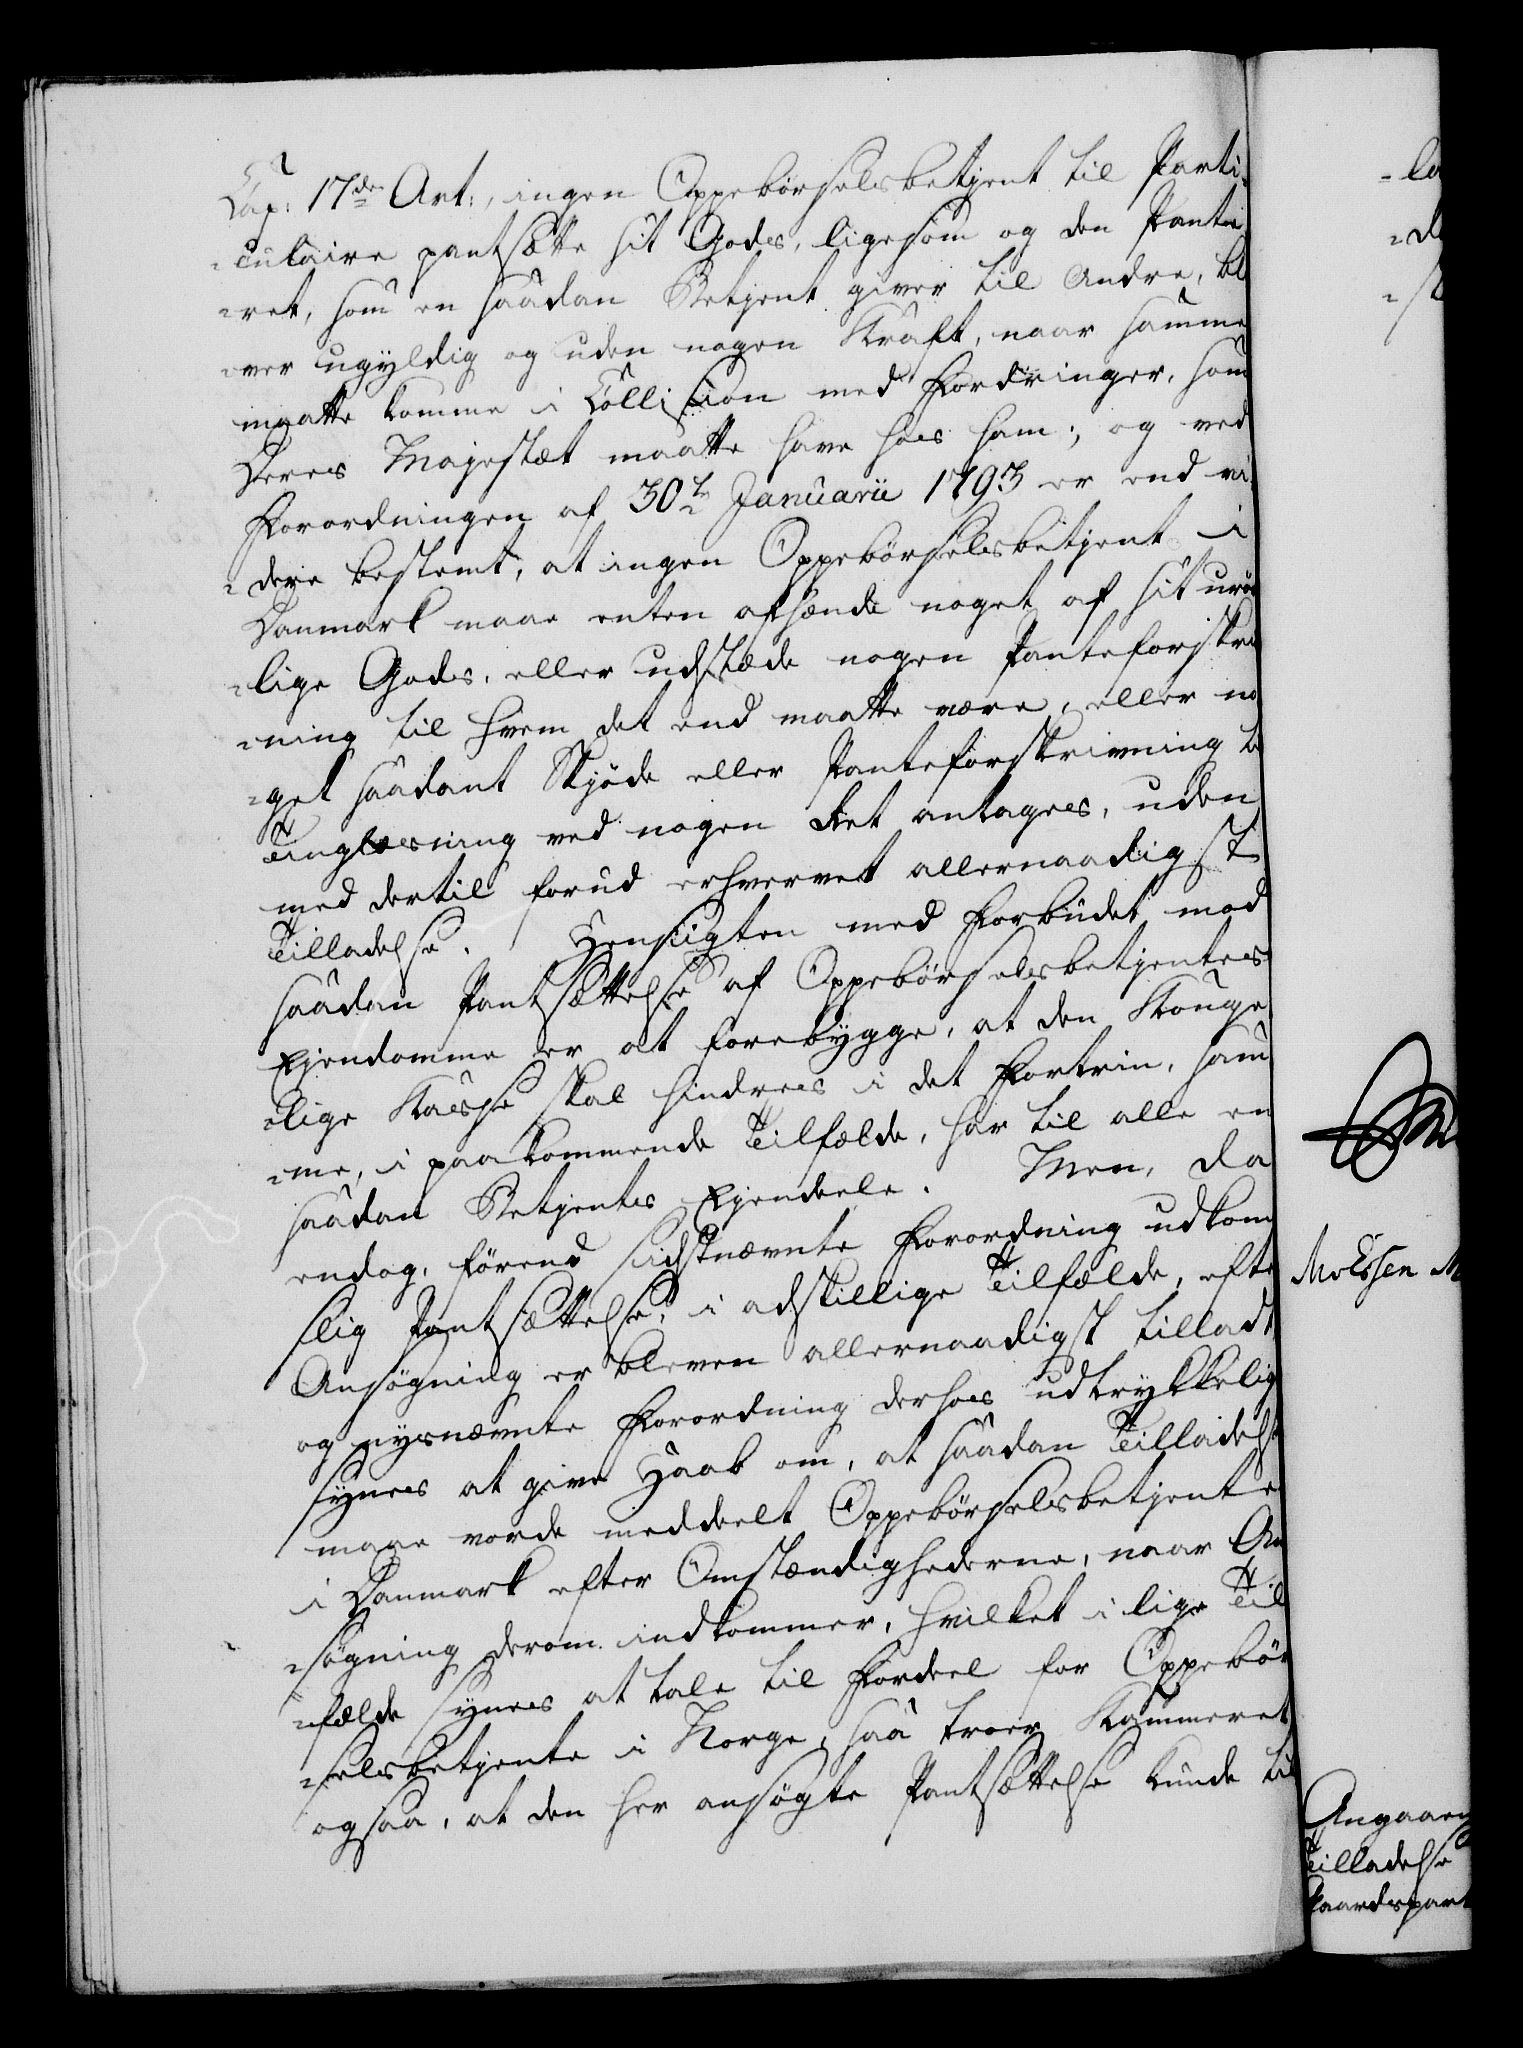 Cap: 17de Art:, ingen Oppebørselsbetjent til Parti-
culaire pantsætte sit Gods, ligesom og den Pante-
ret, som en saadan Betjent giver til Andre, bli
ver ugyldig og uden nogen Kraft, naar samme
maatte komme i Collision med Fordringer, som
Deres Majestæt maatte have hos ham; og ved
Forordningen af 30te Januarii 1793 er end vi-
dere bestemt, at ingen Oppebørselsbetjent i
Danmark maae enten afhænde noget af sit urør
lige Gods, eller udstæde nogen Panteforskriv
ning til hvem det end maatte være, eller no
get saadant Skjøde eller Panteforskrivning til
Tinglæsning ved nogen Ret antages, uden
med dertil forud erhvervet allernaadigst
Tilladelse. Hensigten med Forbudet mod
saadan Pantsættelse af Oppebørselsbetjentes
Ejendomme er at forebygge, at den Konge
lige Kasse skal hindres i det Fortrin, sam
me, i paakommende Tilfælde, har til alle en
saadan Betjentes Ejendeele. Men, da
endog, førend sidstnævnte Forordning udkom
slig Pantsættelse, i adskillige Tilfælde, efter
Ansøgning er bleven allernaadigst tilladt,
og nysnævnte Forordning derhos udtrykkelig
synes at give Haab om, at saadan Tilladelse
maae vorde meddeelt Oppebørselsbetjente
i Danmark efter Omstændighederne, naar An
søgning derom indkommer, hvilket i lige Til
fælde synes at tale til Fordeel for Oppebør
selsbetjente i Norge, saa troer Kammeret
ogsaa, at den her ansøgte Pantsættelse kunde til
Angaaen
Tilladelse